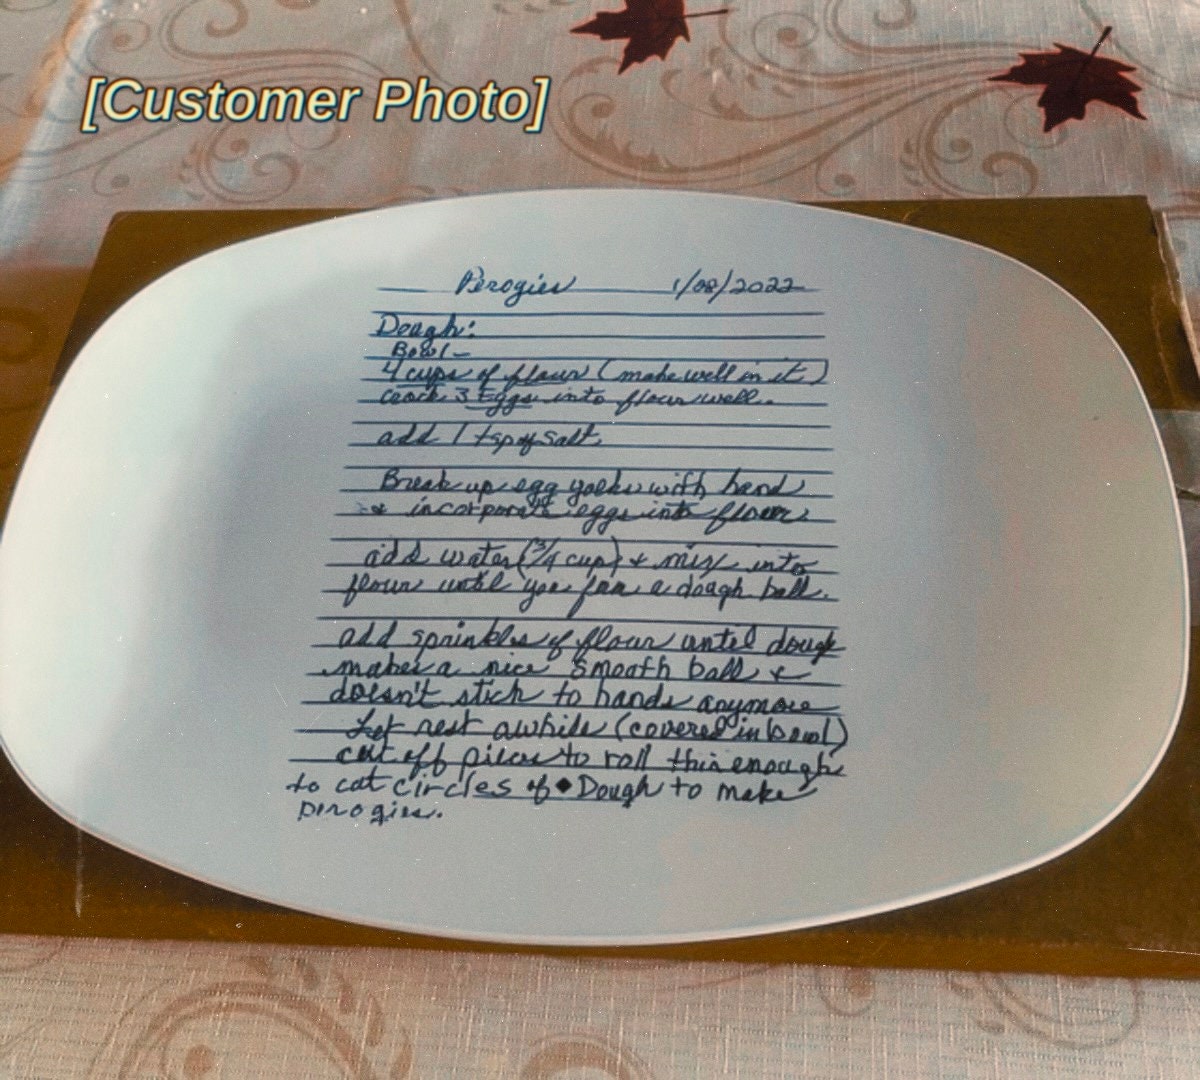 [Customer Photo]
Perogies 1/08/2022
Dough:
Bowl-
4 cups of flour (make well in it)
crack 3 Eggs into flour well.
add 1 tsp of salt.
Break up egg yolks with hand
& incorporate eggs into flour.
add water (3/4 cup) & mix into
flour until you form a dough ball.
add sprinkles of flour until dough
makes a nice smooth ball &
doesn't stick to hands anymore
Let rest awhile (covered in bowl)
cut off pieces to roll thin enough
to cut circles of ◆ Dough to make
pirogies.